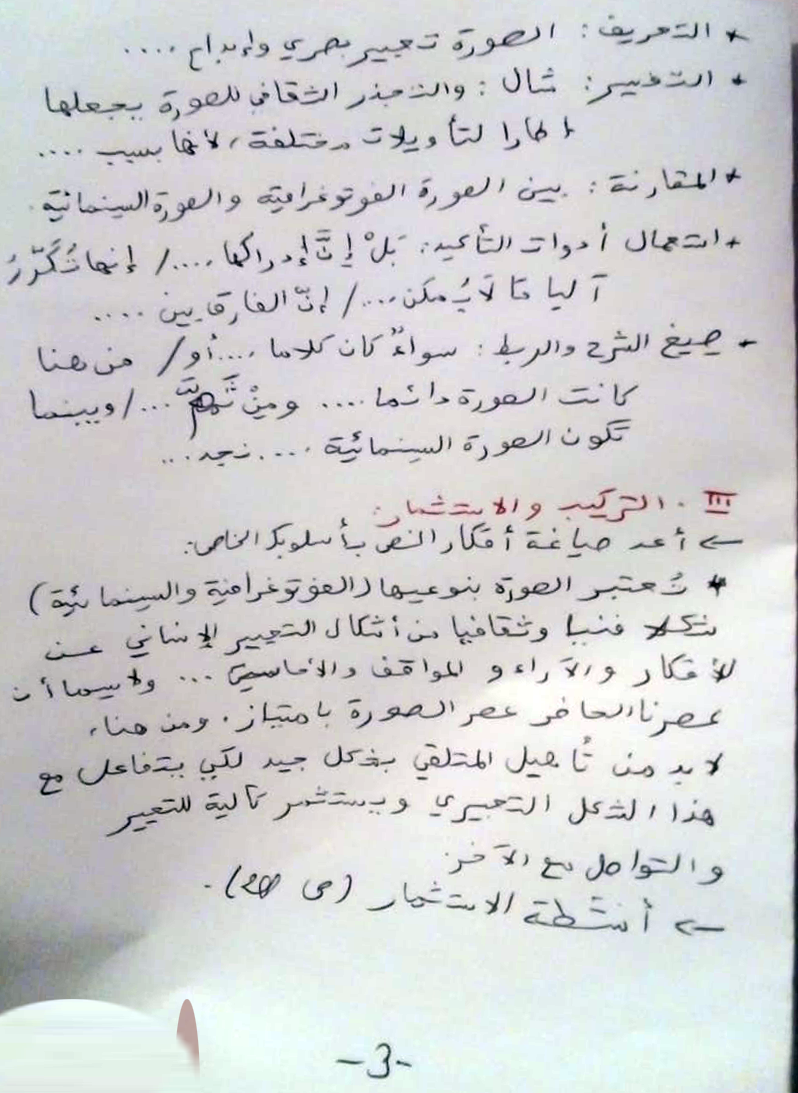 * التعريف: الصورة تعبير بصري وإبداع ....
* التفسير: مثال: والتجذر الثقافي للصورة يجعلها
إطارا لتأويلات مختلفة، لأنها بسبب ....
* المقارنة: بين الصورة الفوتوغرافية والصورة السينمائية.
* استعمال أدوات التأكيد: بَلْ إِنَّ إدراكها ..../ إنها تُكَرِّرُ
آليا مَا لَا يُمكن .../ إنّ الفارق بين ....
* صيغ الشرح والربط: سواءٌ كان كلاما ....أو/ من هنا
كانت الصورة دائما .... ومِنْ ثَمَّ .../ وبينما
تكون الصورة السينمائية .... نجد...
III. التركيب والاستثمار:
← أعد صياغة أفكار النص بأسلوبك الخاص:
* تُعتبر الصورة بنوعيها (الفوتوغرافية والسينمائية)
شكلا فنيا وثقافيا من أشكال التعبير الإنساني عن
الأفكار والآراء و المواقف والأحاسيس ... ولاسيما أن
عصرنا الحاضر عصر الصورة بامتياز. ومن هنا،
لابد من تأهيل المتلقي بشكل جيد لكي يتفاعل مع
هذا الشكل التعبيري ويستثمر كآلية للتعبير
والتواصل مع الآخر.
← أنشطة الاستثمار (ص).
-3-